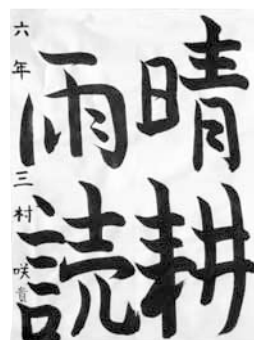 晴耕
雨読
六年 三村 咲